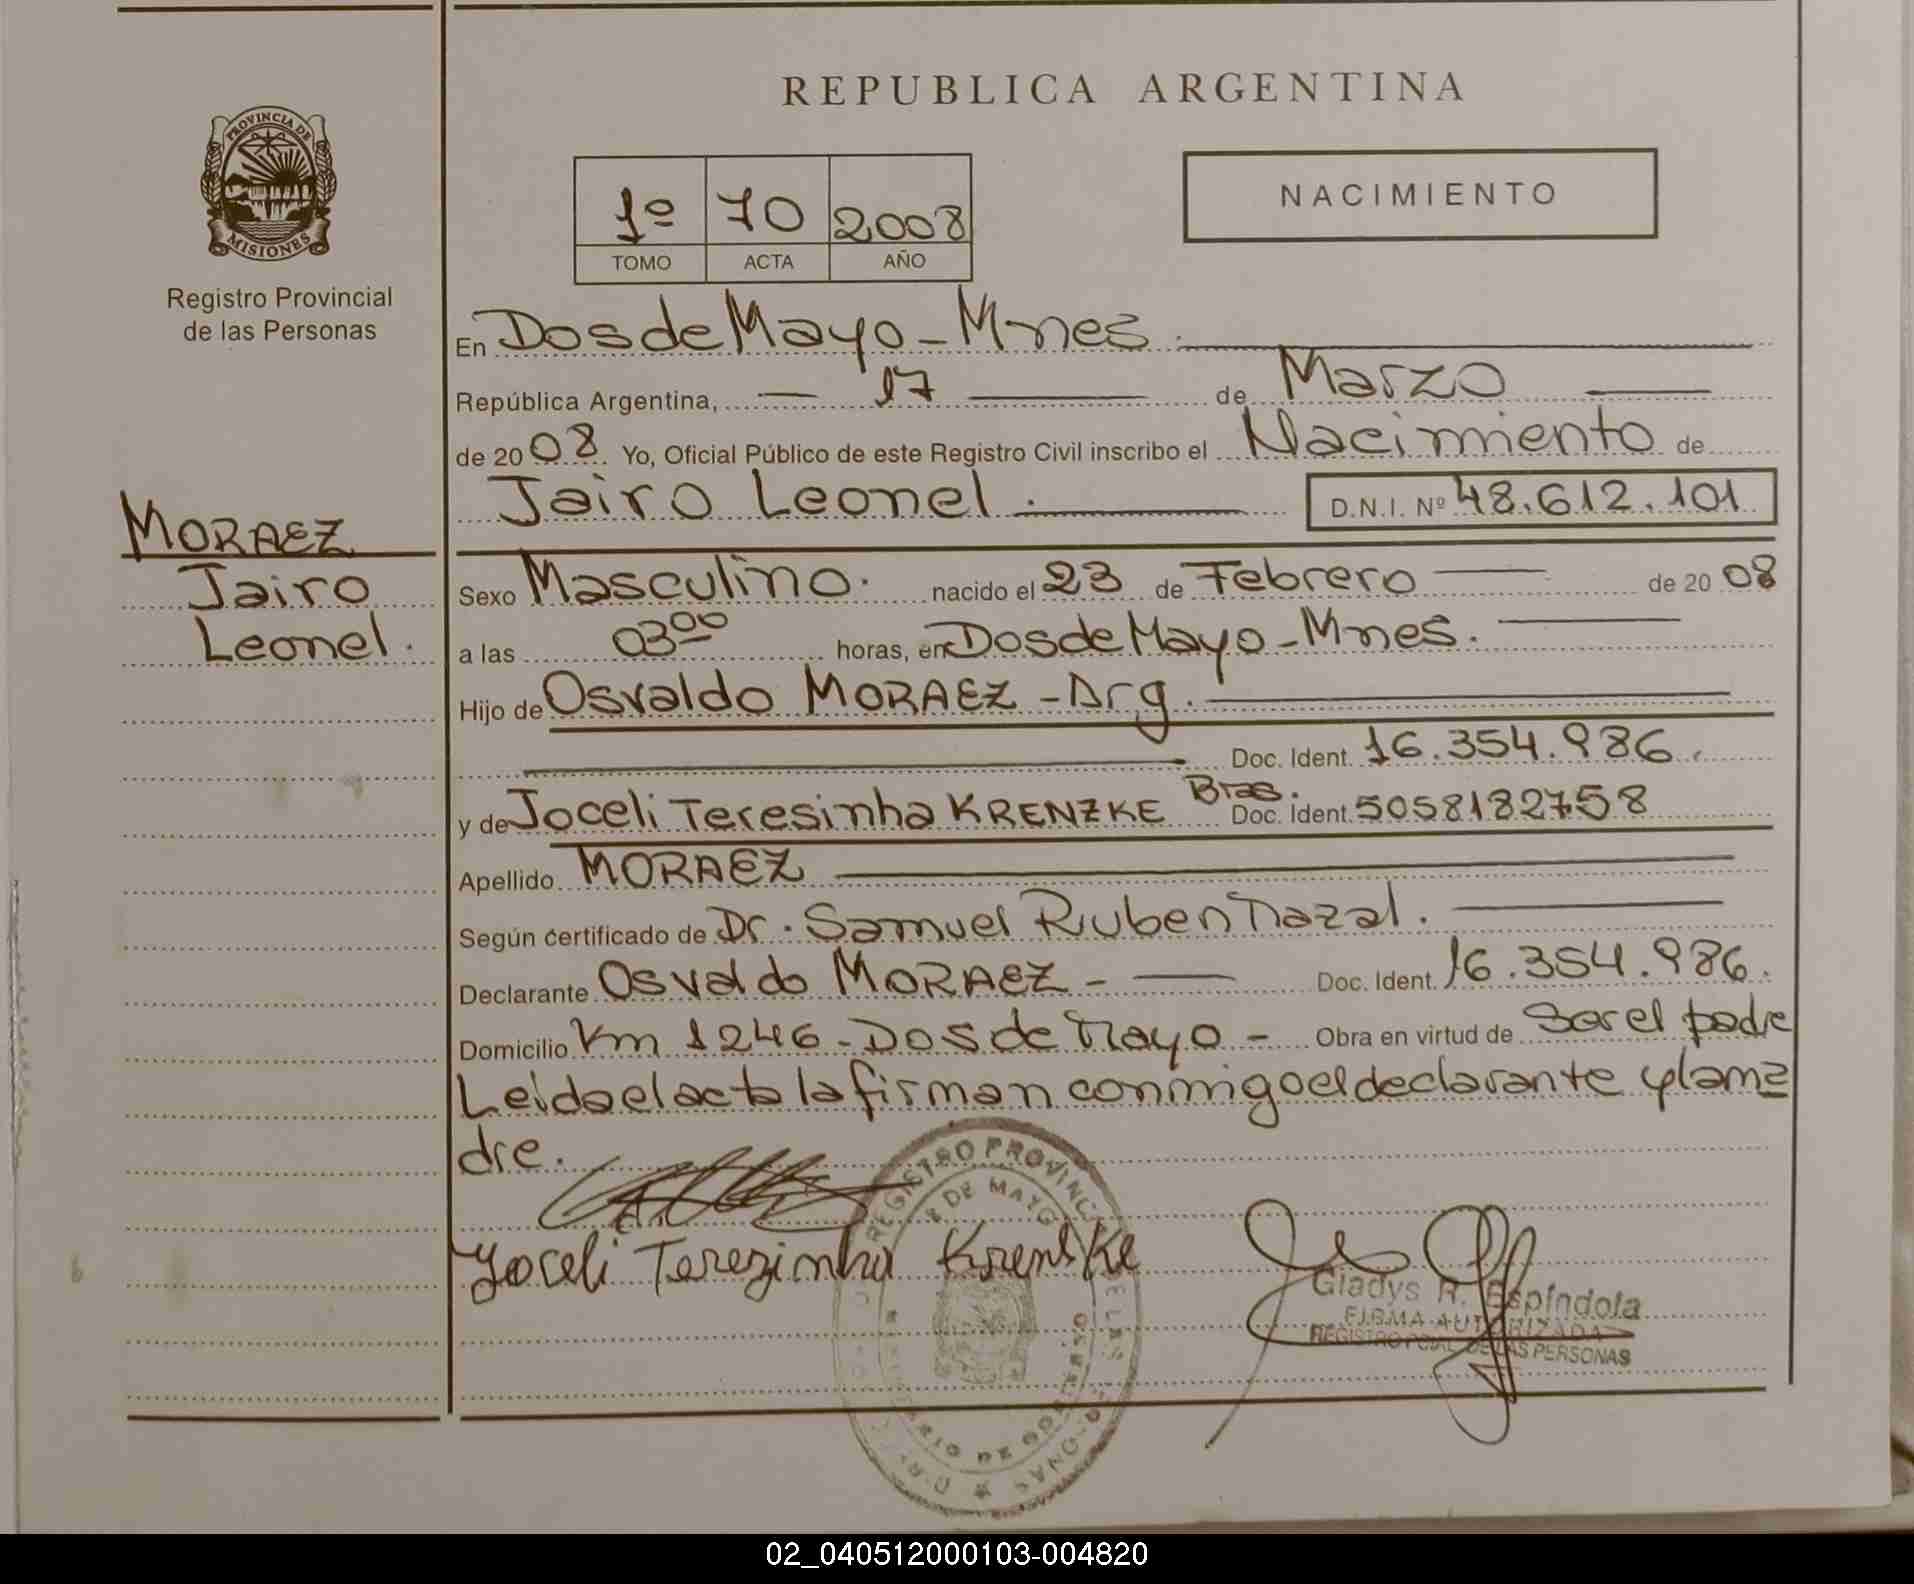 REPUBLICA ARGENTINA
PROVINCIA DE
MISIONES
Registro Provincial
de las Personas
1º 70 2008
TOMO ACTA AÑO
NACIMIENTO
En Dos de Mayo - Mnes.
República Argentina, 17 de Marzo
de 2008 Yo, Oficial Público de este Registro Civil inscribo el Nacimiento de
Jairo Leonel. D.N.I. Nº 48.612.101
MORAEZ
Jairo
Leonel.
Sexo Masculino. nacido el 23 de Febrero de 2008
a las 03 00 horas, en Dos de Mayo - Mnes.
Hijo de Osvaldo MORAEZ - Arg.
Doc. Ident. 16.354.986.
y de Joceli Teresinha KRENZKE Bras. Doc. Ident. 5058182758
Apellido MORAEZ
Según certificado de Dr. Samuel Ruben Nazal.
Declarante Osvaldo MORAEZ - Doc. Ident. 16.354.986.
Domicilio Km 1246 - Dos de Mayo - Obra en virtud de Ser el padre
Leida el acta la firman conmigo el declarante y la ma
dre.
REGISTRO PROVINCIAL DE LAS PERSONAS
2 DE MAYO
Joceli Terezinha Krenske
Gladys R. Espíndola
FIRMA AUTORIZADA
REGISTRO PCIAL. DE LAS PERSONAS
02_040512000103-004820